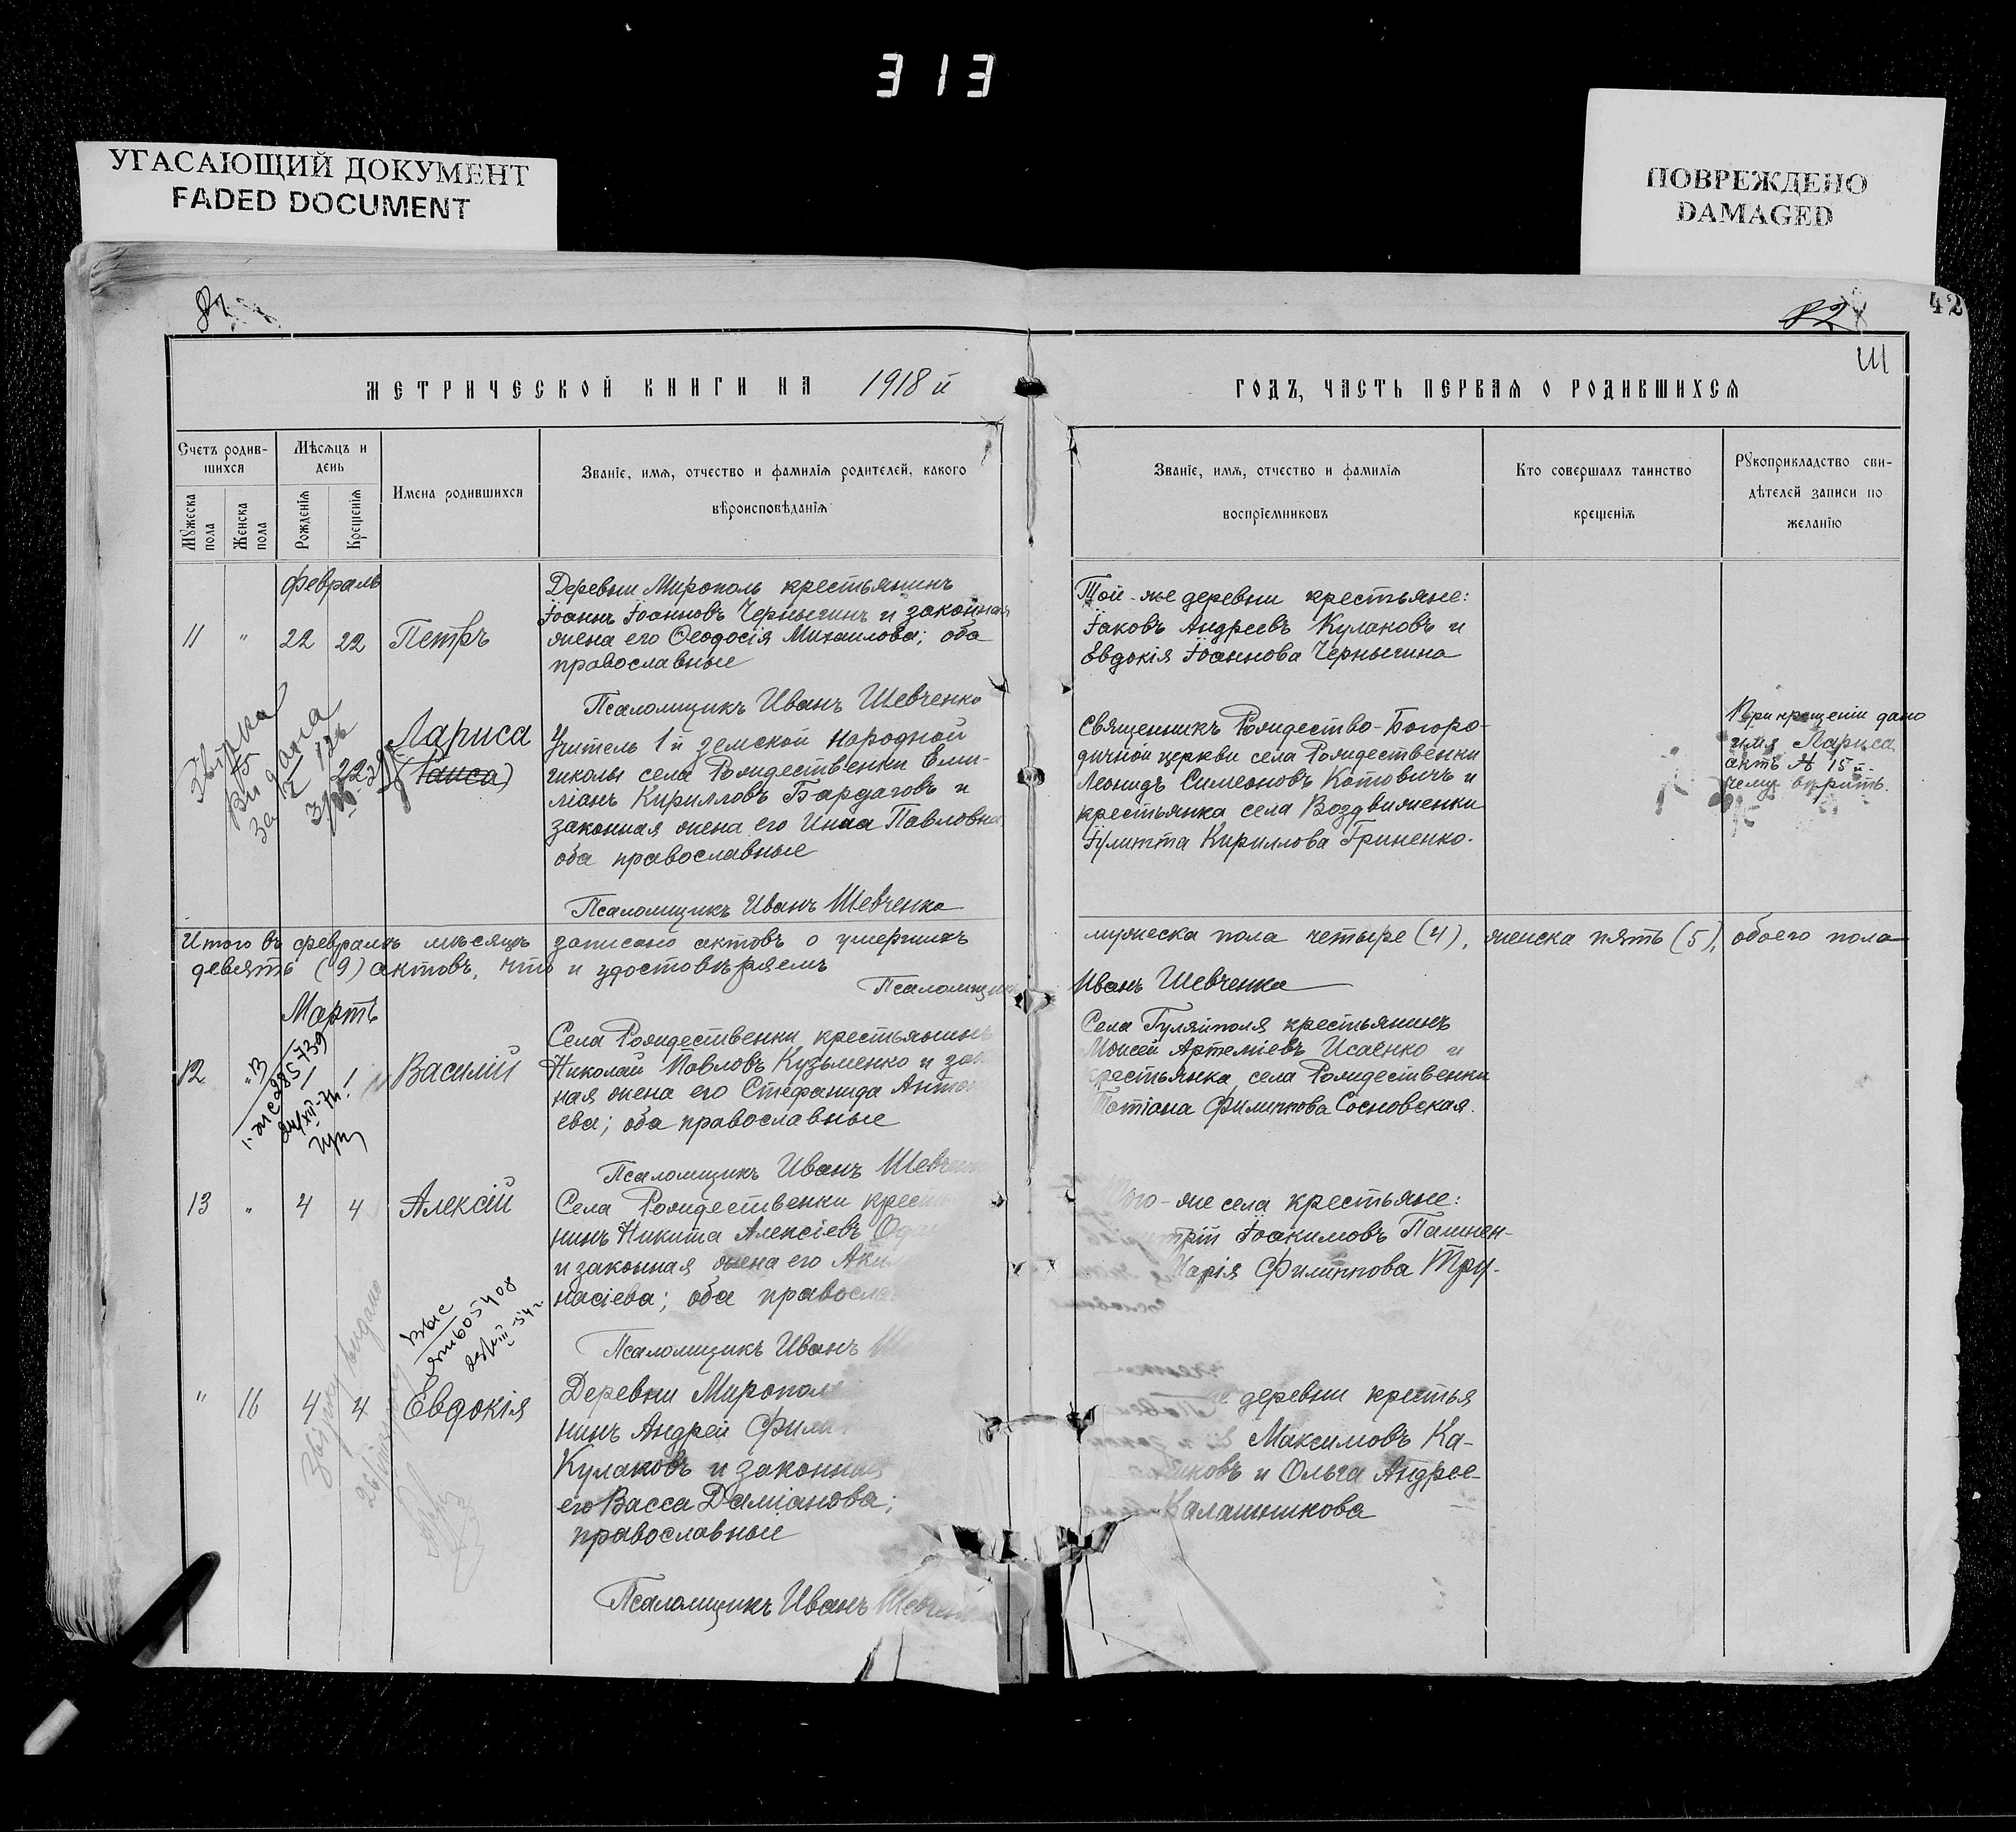 313
УГАСАЮЩИЙ ДОКУМЕНТ
FADED DOCUMENT
ПОВРЕЖДЕНО
DAMAGED
42
82
МЕТРИЧЕСКОЙ КНИГИ НА 1918 й
ГОДЪ, ЧАСТЬ ПЕРВАЯ О РОДИВШИХСЯ
Счетъ родив-
шихся
Мужеска пола
Женска пола
Мѣсяцъ и
день
Рожденія
Крещенія
Имена родившихся
Званіе, имя, отчество и фамилія родителей, какого
вѣроисповѣданія
Званіе, имя, отчество и фамилія
воспріемниковъ
Кто совершалъ таинство
крещенія
Рукоприкладство сви-
дѣтелей записи по
желанію
февраль
11 " 22 22 Петръ
Деревни Мирополь крестьянинъ
Іоаннъ Іоанновъ Чернычинъ и законная
жена его Ѳеодосія Михаилова; оба
православные
Той-же деревни крестьяне:
Іаковъ Андреевъ Кулаковъ и
Евдокія Іоаннова Чернычина
Псаломщикъ Иванъ Шевченко
Лариса
(Раиса)
Учитель 1й земской народной
школы села Рождественки Еми-
ліанъ Кирилловъ Бардаговъ и
законная жена его Инна Павловна
оба православные
Священникъ Рождество-Богоро-
дичной церкви села Рождественки
Леонидъ Симеоновъ Котовичъ и
крестьянка села Воздвиженки
Іулитта Кириллова Гриненко.
При крещеніи дано
имя Лариса
актъ № 15й
чему вѣрить.
Псаломщикъ Иванъ Шевченко
Итого въ февралѣ мѣсяцѣ записано актовъ о умершихъ мужеска пола четыре (4), женска пять (5), обоего пола
девять (9) актовъ, что и удостовѣряемъ
Псаломщикъ Иванъ Шевченко
Мартъ
12 " 1 1 Василій
Села Рождественки крестьянинъ
Николай Павловъ Кузьменко и зак
ная жена его Стефанида Антон
ева; оба православные
Села Гуляйполя крестьянинъ
Моисей Артеміевъ Исаенко и
крестьянка села Рождественки
Татіана Филиппова Сосновская.
Псаломщикъ Иванъ Шевчен
13 " 4 4 Алексій
Села Рождественки крестья
нинъ Никита Алексіевъ
и законная жена его
насіева; оба правосла
того-же села крестьяне:
Іоакимовъ Пашнен-
Марія Филиппова Тру-
Псаломщикъ Иванъ
" 16 4 4 Евдокія
Деревни Мирополь
нинъ Андрей Фили
Кулаковъ и законная
его Васса Даміанова;
православные
е деревни крестья
Максимовъ Ка-
иковъ и Ольга Андрее-
Калашникова
Псаломщикъ Иванъ Шевченко